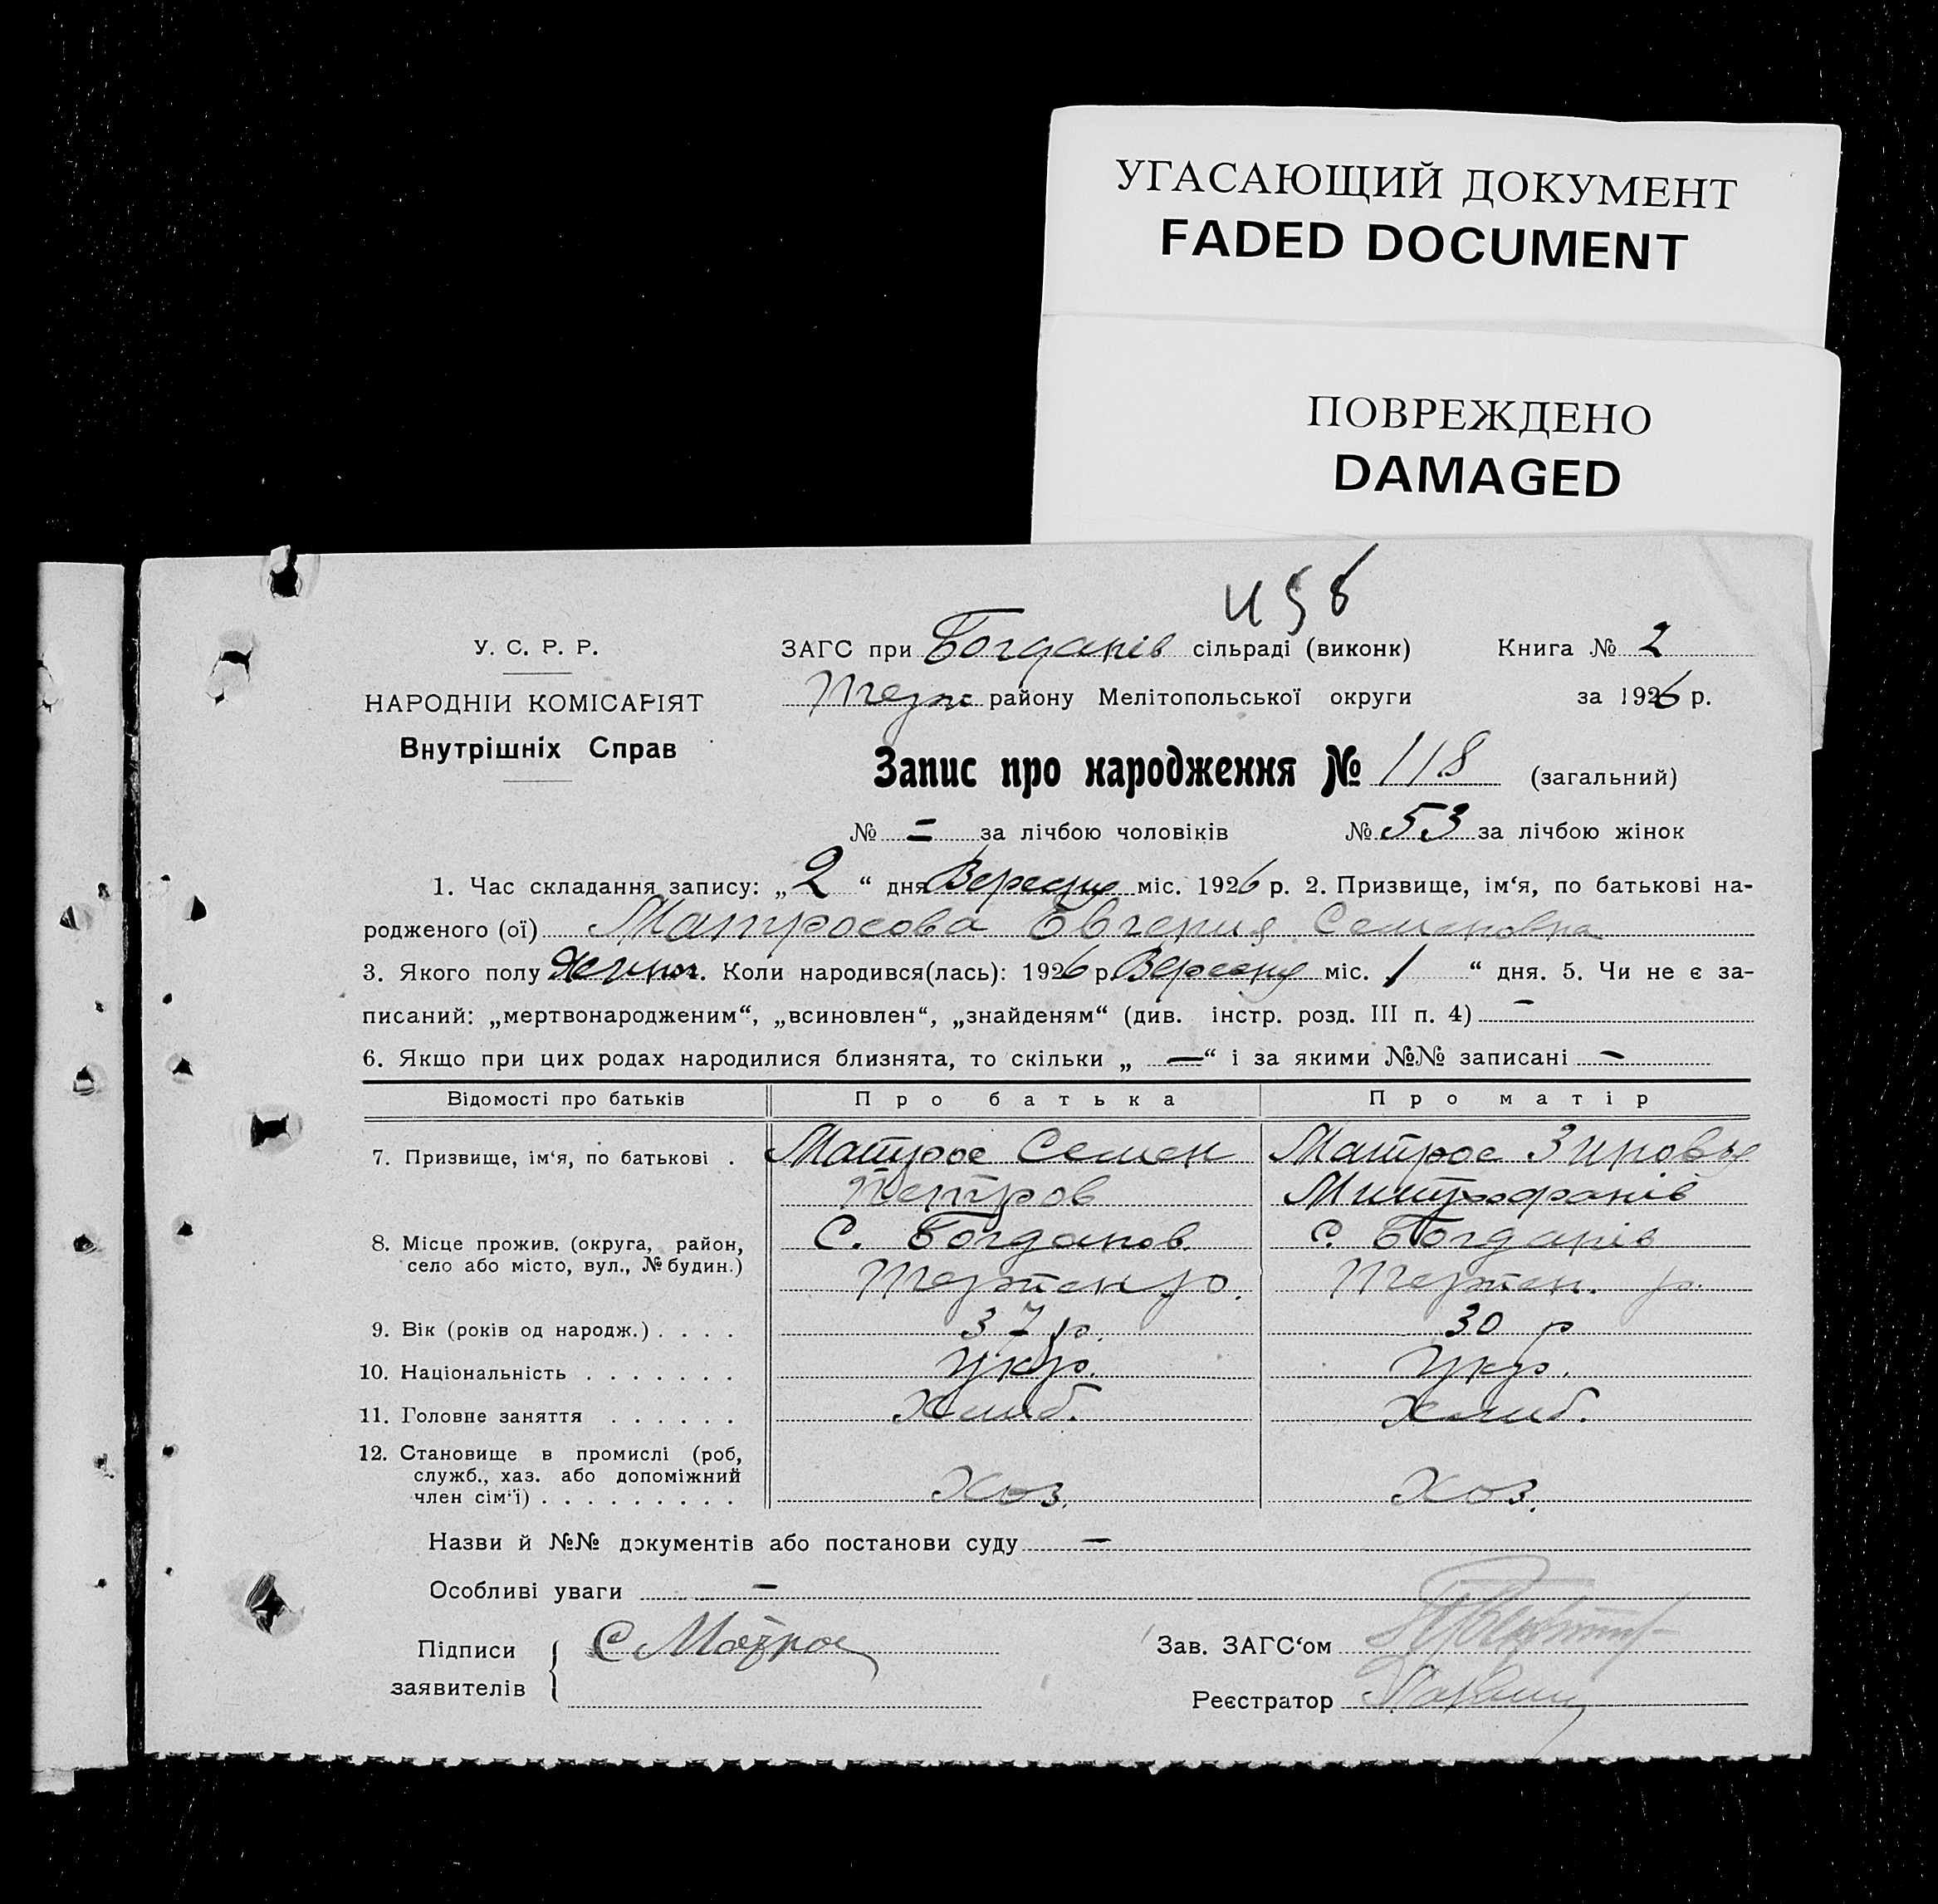 УГАСАЮЩИЙ ДОКУМЕНТ
FADED DOCUMENT
ПОВРЕЖДЕНО
DAMAGED
У. С. Р. Р.
НАРОДНІЙ КОМІСАРІЯТ
Внутрішніх Справ
ЗАГС при Богданів сільраді (виконк) Книга № 2
району Мелітопольської округи за 1926 р.
Запис про народження № 118 (загальний)
№ = за лічбою чоловіків № 53 за лічбою жінок
1. Час складання запису: „2“ дня Вересня міс. 1926 р. 2. Призвище, ім‘я, по батькові на-
родженого (ої) Матросова Евгения Семеновна
3. Якого полу жіноч. Коли народився(лась): 1926 р. Вересня міс. 1 “ дня. 5. Чи не є за-
писаний: „мертвонародженим“, „всиновлен“, „знайденям“ (див. інстр. розд. III п. 4) –
6. Якщо при цих родах народилися близнята, то скільки „ — “ і за якими №№ записані –
Відомості про батьків Про батька Про матір
7. Призвище, ім‘я, по батькові . Матрос Семен Матрос Зиновья
Петров Митрофанів
8. Місце прожив. (округа, район, С. Богданов. С. Богданів
село або місто, вул., № будин.) р. р.
9. Вік (років од народж.) . . . . 37 р. 30 р
10. Національність . . . . . . . Укр. Укр.
11. Головне заняття . . . . . . Хлиб. Хлиб.
12. Становище в промислі (роб,
служб., хаз. або допоміжний
член сім‘ї) . . . . . . . . . Хоз. Хоз.
Назви й №№ документів або постанови суду –
Особливі уваги –
Підписи С Матрос Зав. ЗАГС‘ом
заявителів Реєстратор